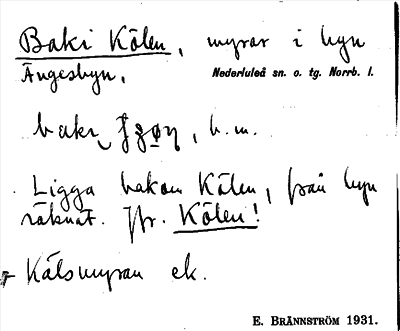 Baki Kölen, myrar i byn
Ängesbyn, Nederluleå sn. o. tg. Norrb. l.
b. m.
Ligga bakom Kölen, från byn
räknat. Jfr. Kölen!
Kälsmyran ek.
E. BRÄNNSTRÖM 1931.